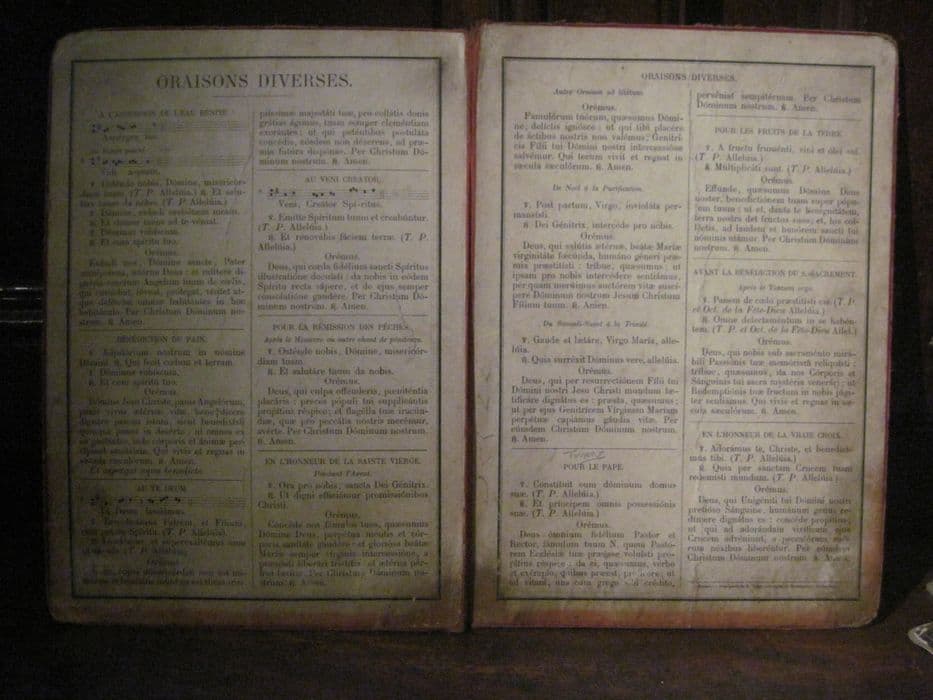 ORAISONS DIVERSES.
A L'ASPERSION DE L'EAU BÉNITE
Asperges me.
Vidi aquam.
℣. Osténde nobis, Dómine, misericór-
diam tuam. (T. P. Allelúia.) ℟. Et salu-
táre tuum da nobis. (T. P. Allelúia.)
℣. Dómine, exáudi oratiónem meam.
℟. Et clamor meus ad te véniat.
℣. Dóminus vobíscum.
℟. Et cum spíritu tuo.
Orémus.
Exáudi nos, Dómine sancte, Pater
omnípotens, ætérne Deus: et míttere di-
gnéris sanctum Angelum tuum de cælis,
qui custódiat, fóveat, prótegat, vísitet at-
que deféndat omnes habitántes in hoc
habitáculo. Per Christum Dóminum nos-
trum. ℟. Amen.
BÉNÉDICTION DU PAIN.
℣. Adjutórium nostrum in nómine
Dómini. ℟. Qui fecit cælum et terram.
℣. Dóminus vobíscum.
℟. Et cum spíritu tuo.
Orémus.
Dómine Jesu Christe, panis Angelórum,
panis vivus ætérnæ vitæ, bene†dícere
dignáre panem istum, sicut benedixísti
quinque panes in desérto: ut omnes ex
eo gustántes, inde córporis et ánimæ per-
cípiant sanitátem. Qui vivis et regnas in
sǽcula sæculórum. ℟. Amen.
Et aspergat aqua benedicta.
AU TE DEUM.
Te Deum laudámus.
℣. Benedicámus Patrem, et Fílium,
cum sancto Spíritu. (T. P. Allelúia).
℟. Laudémus, et superexaltémus eum
in sǽcula. (T. P. Allelúia).
Orémus.
Deus, cujus misericórdiæ non est nú-
merus et bonitátis infinítus est thesáurus:
piíssimæ majestáti tuæ, pro collátis donis
grátias ágimus, tuam semper cleméntiam
exorántes: ut qui peténtibus postuláta
concédis, eósdem non déserens, ad præ-
mia futúra dispónas. Per Christum Dó-
minum nostrum. ℟ Amen.
AU VENI CREATOR.
Veni, Creátor Spí-ritus.
℣. Emítte Spíritum tuum et creabúntur.
(T. P. Allelúia.)
℟. Et renovábis fáciem terræ. (T. P.
Allelúia.)
Orémus.
Deus, qui corda fidélium sancti Spíritus
illustratióne docuísti: da nobis in eódem
Spíritu recta sápere, et de ejus semper
consolatióne gaudére. Per Christum Dó-
minum nostrum. ℟. Amen.
POUR LA RÉMISSION DES PÉCHÉS.
Après le Miserere ou autre chant de pénitence.
℣. Osténde nobis, Dómine, misericór-
diam tuam.
℟. Et salutáre tuum da nobis.
Orémus.
Deus, qui culpa offénderis, pœniténtia
placáris: preces pópuli tui supplicántis
propítius réspice; et flagélla tuæ iracún-
diæ, quæ pro peccátis nostris merémur,
avérte. Per Christum Dóminum nostrum.
℟. Amen.
EN L'HONNEUR DE LA SAINTE VIERGE.
Pendant l'Avent.
℣. Ora pro nobis, sancta Dei Génitrix.
℟. Ut digni efficiámur promissiónibus
Christi.
Orémus.
Concéde nos fámulos tuos, quǽsumus
Dómine Deus, perpétua mentis et cór-
poris sanitáte gaudére: et gloriósa beátæ
Maríæ semper vírginis intercessióne, a
præsénti liberári tristítia, et ætérna pér-
frui lætítia. Per Christum Dóminum nos-
trum. ℟. Amen.
ORAISONS DIVERSES.
Autre Oraison ad libitum.
Orémus.
Famulórum tuórum, quǽsumus Dómi-
ne, delíctis ignósce: ut qui tibi placére
de áctibus nostris non valémus; Genitrí-
cis Fílii tui Dómini nostri intercessióne
salvémur. Qui tecum vivit et regnat in
sǽcula sæculórum. ℟. Amen.
De Noël à la Purification.
℣. Post partum, Virgo, invioláta per-
mansísti.
℟. Dei Génitrix, intercéde pro nobis.
Orémus.
Deus, qui salútis ætérnæ, beátæ Maríæ
virginitáte fœcúnda, humáno géneri præ-
mia præstitísti: tríbue, quǽsumus; ut
ipsam pro nobis intercédere sentiámus,
per quam merúimus auctórem vitæ susci-
pere Dóminum nostrum Jesum Christum
Fílium tuum. ℟. Amen.
Du Samedi-Saint à la Trinité.
℣. Gaude et lætáre, Virgo María, alle-
lúia.
℟. Quia surréxit Dóminus vere, allelúia.
Orémus.
Deus, qui per resurrectiónem Fílii tui
Dómini nostri Jesu Christi mundum læ-
tificáre dignátus es: præsta, quǽsumus;
ut per ejus Genitrícem Vírginem Maríam
perpétuæ capiámus gáudia vitæ. Per
eúmdem Christum Dóminum nostrum.
℟. Amen.
POUR LE PAPE.
℣. Constítuit eum dóminum domus
suæ. (T. P. Allelúia.)
℟. Et príncipem omnis possessiónis
suæ. (T. P. Allelúia.)
Orémus.
Deus ómnium fidélium Pastor et
Rector, fámulum tuum N. quem Pastó-
rem Ecclésiæ tuæ præésse voluísti pro-
pítius réspice: da ei, quǽsumus, verbo
et exémplo, quibus præest, profícere; ut
ad vitam, una cum grege sibi crédito,
pervéniat sempitérnam. Per Christum
Dóminum nostrum. ℟ Amen.
POUR LES FRUITS DE LA TERRE
℣. A fructu fruménti, vini et ólei sui.
(T. P. Allelúia.)
℟. Multiplicáti sunt. (T. P. Allelúia.)
Orémus.
Effúnde, quǽsumus Dómine Deus
noster, benedictiónem tuam super pópu-
lum tuum: ut et, dante te benignitátem,
terra nostra det fructus suos; et, his col-
léctis, ad laudem et honórem sancti tui
nóminis utámur. Per Christum Dóminum
nostrum. ℟. Amen.
AVANT LA BÉNÉDICTION DU S. SACREMENT.
Après le Tantum ergo.
℣. Panem de cælo præstitísti eis. (T. P.
et Oct. de la Fête-Dieu Allelúia.)
℟. Omne delectaméntum in se habén-
tem. (T. P. et Oct. de la Fête-Dieu Allel.)
Orémus.
Deus, qui nobis sub sacraménto mirá-
bili Passiónis tuæ memóriam reliquísti:
tríbue, quǽsumus, ita nos Córporis et
Sánguinis tui sacra mystéria venerári; ut
Redemptiónis tuæ fructum in nobis júgi-
ter sentiámus. Qui vivis et regnas in sæ-
cula sæculórum. ℟. Amen.
EN L'HONNEUR DE LA VRAIE CROIX.
℣. Adorámus te, Christe, et benedíci-
mus tibi. (T. P. Allelúia.)
℟. Quia per sanctam Crucem tuam
redemísti mundum. (T. P. Allelúia.)
Orémus.
Deus, qui Unigéniti tui Dómini nostri
pretióso Sánguine, humánum genus re-
dímere dignátus es: concéde propítius;
ut qui ad adorándam vivíficam ejus
Crucem advéniunt, a peccatórum suó-
rum néxibus liberéntur. Per eúmdem
Christum Dóminum nostrum. ℟. Amen.